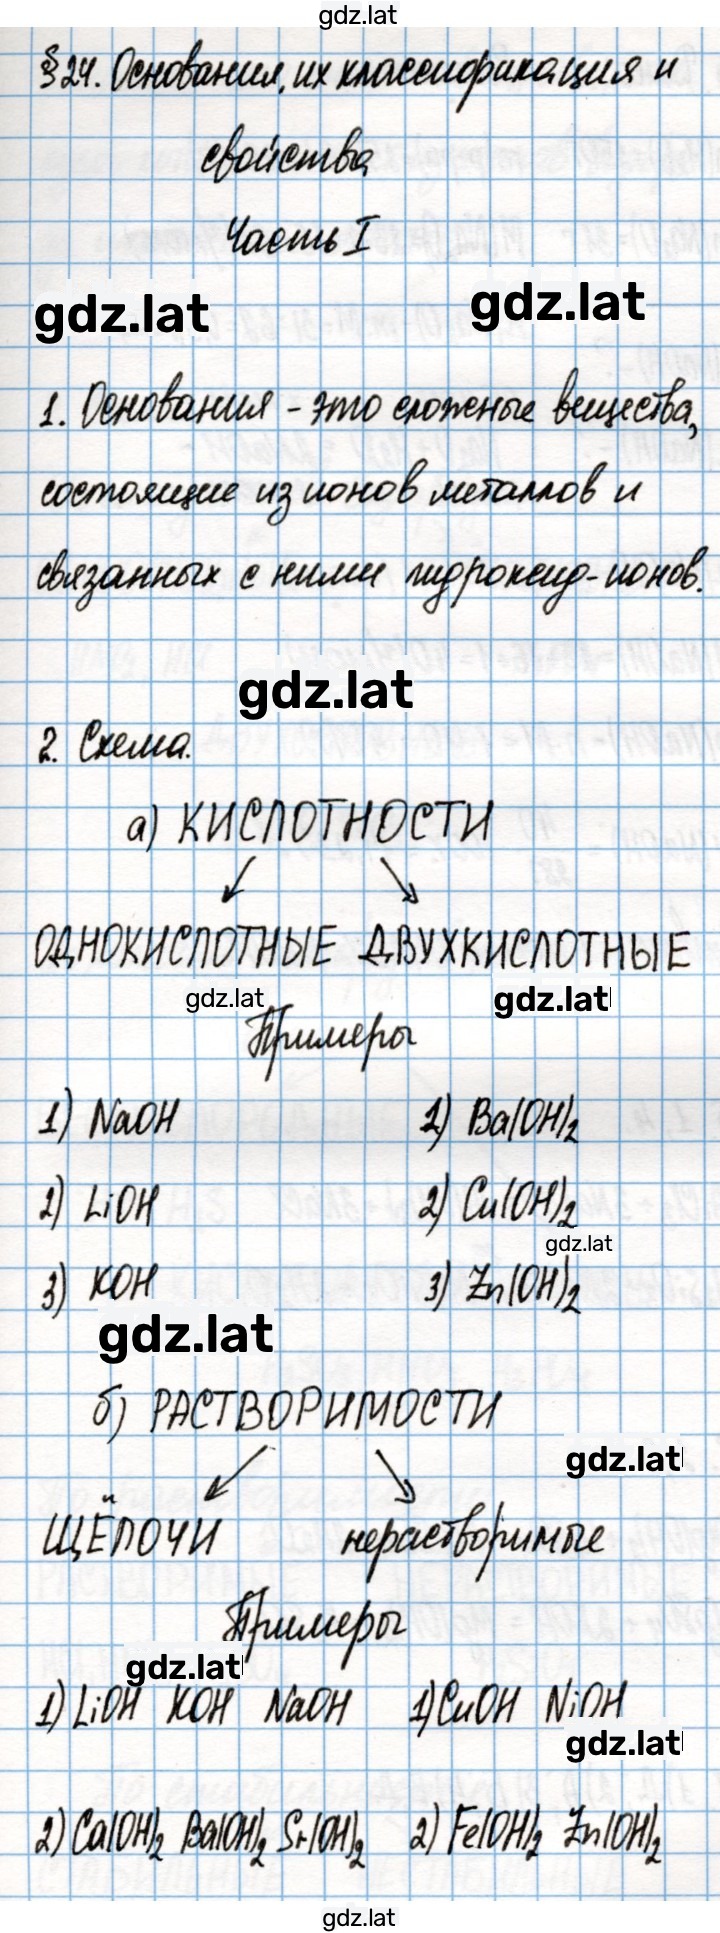 gdz.lat
§ 24. Основания, их классификация и
свойства
Часть I
gdz.lat gdz.lat
1. Основания - это сложные вещества,
состоящие из ионов металлов и
связанных с ними гидроксид-ионов.
gdz.lat
2. Схема.
а) КИСЛОТНОСТИ
ОДНОКИСЛОТНЫЕ ДВУХКИСЛОТНЫЕ
gdz.lat gdz.lat
Примеры
1) NaOH 1) Ba(OH)2
2) LiOH 2) Cu(OH)2
gdz.lat
3) KOH 3) Zn(OH)2
gdz.lat
б) РАСТВОРИМОСТИ
gdz.lat
ЩЁЛОЧИ нерастворимые
Примеры
gdz.lat
1) LiOH KOH NaOH 1) CuOH NiOH
gdz.lat
2) Ca(OH)2 Ba(OH)2 Sr(OH)2 2) Fe(OH)2 Zn(OH)2
gdz.lat